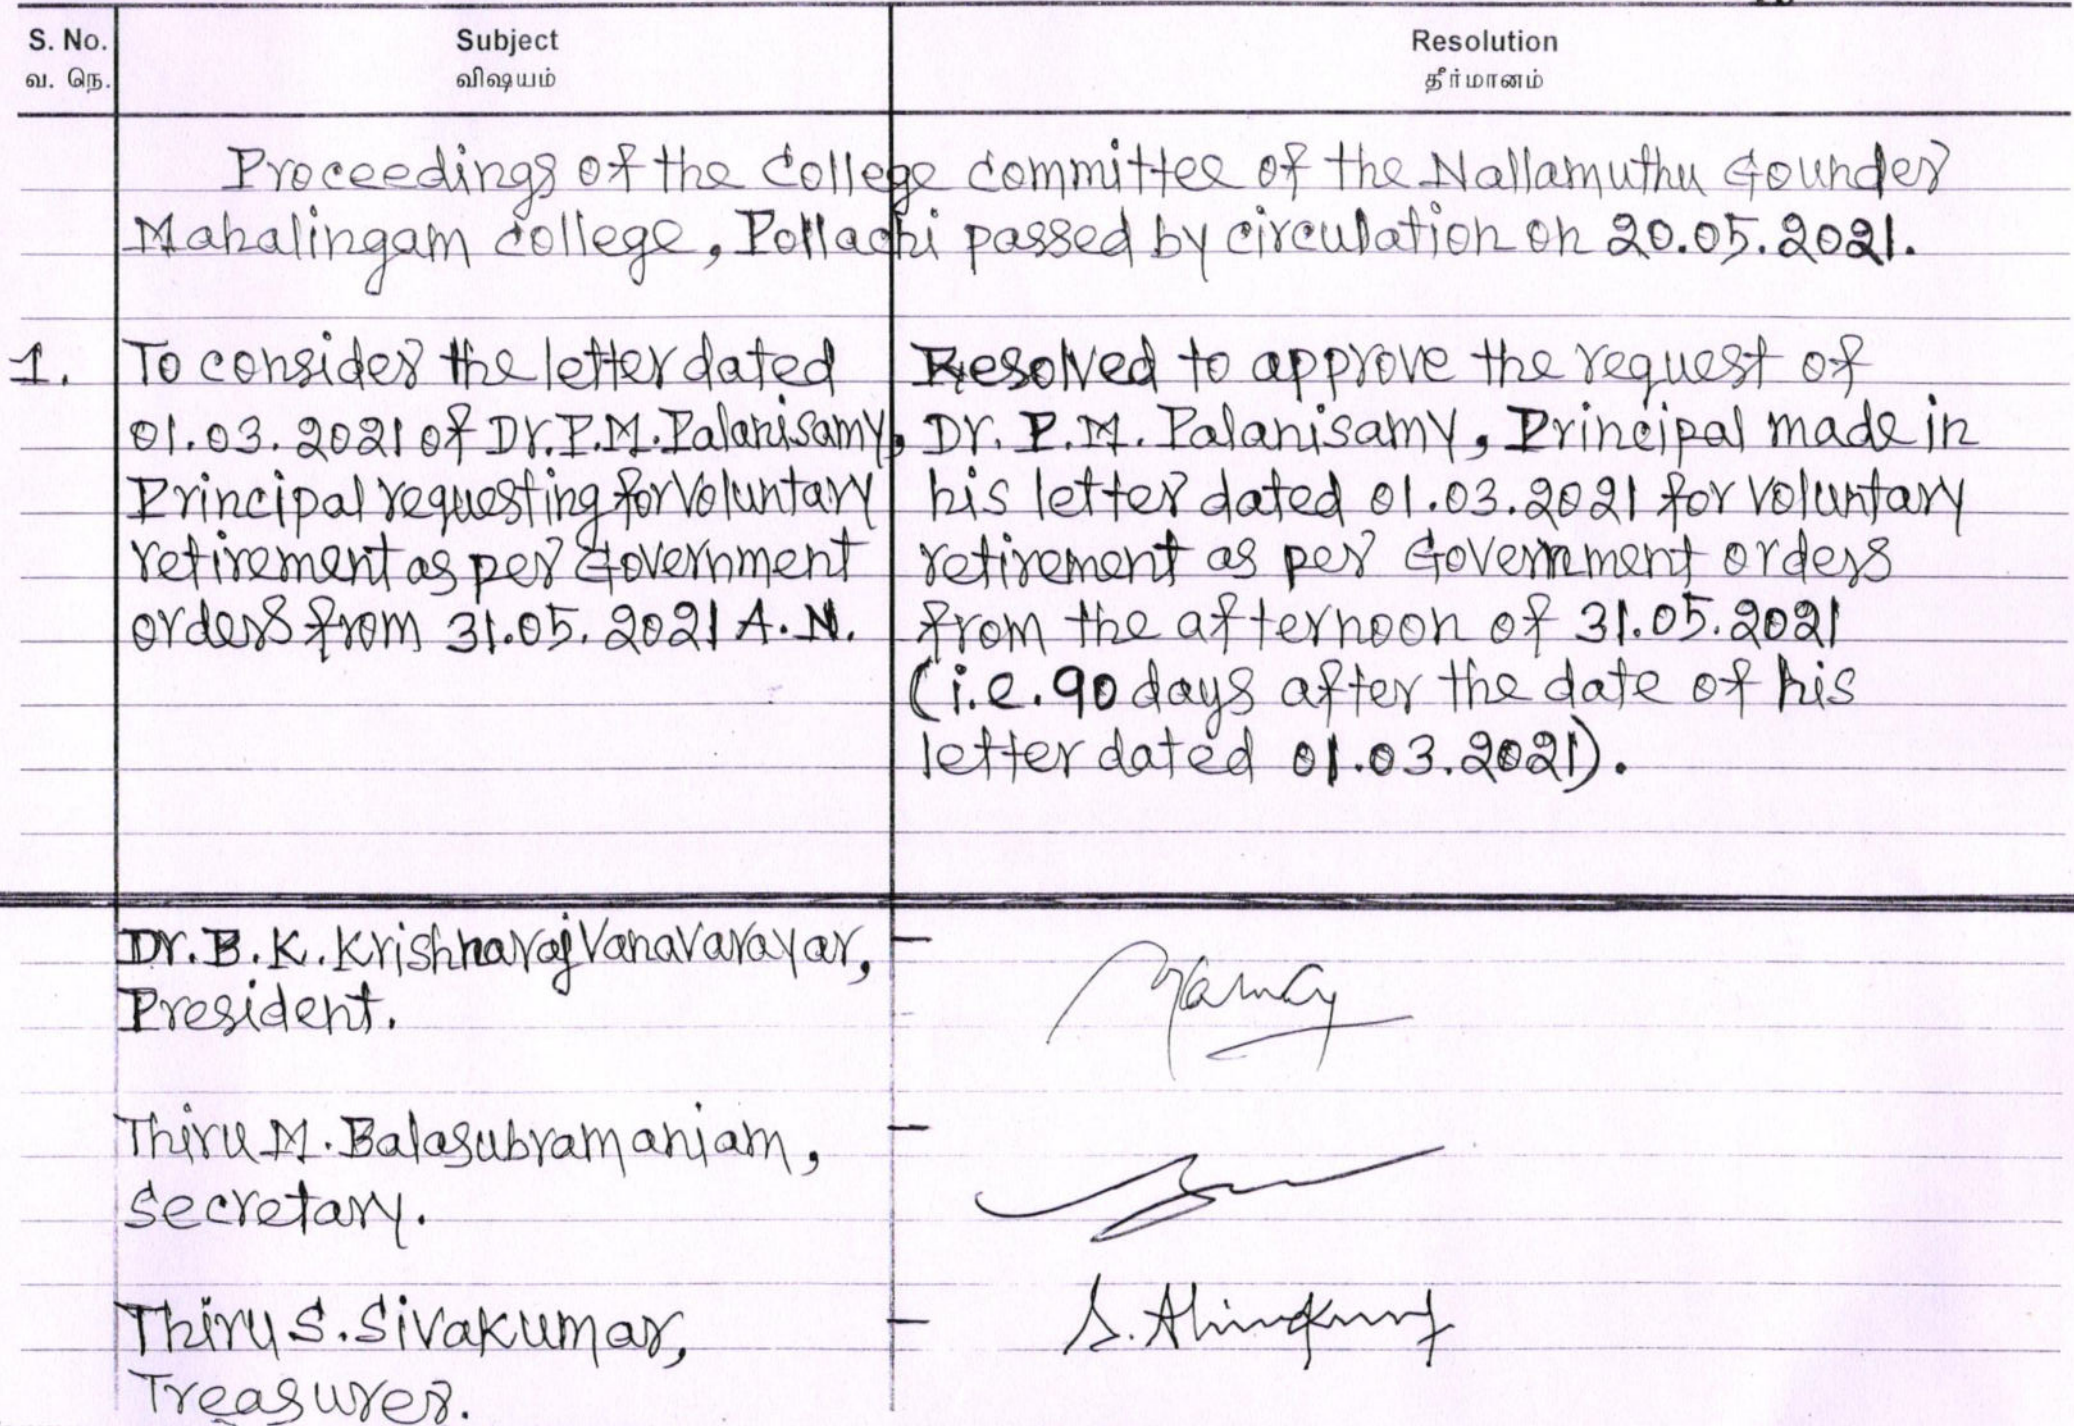 S. No. Subject Resolution
வ. நெ. விஷயம் தீர்மானம்
Proceedings of the College Committee of the Nallamuthu Gounder
Mahalingam College, Pollachi passed by circulation on 20.05.2021.
1. To consider the letter dated
01.03.2021 of Dr.P.M.Palanisamy,
Principal requesting for Voluntary
retirement as per Government
orders from 31.05.2021 A.N.
Resolved to approve the request of
Dr. P.M. Palanisamy, Principal made in
his letter dated 01.03.2021 for Voluntary
retirement as per Government orders
from the afternoon of 31.05.2021
(i.e. 90 days after the date of his
letter dated 01.03.2021).
Dr. B.K. Krishnaraj Vanavarayar, –
President.
Thiru M. Balasubramaniam, –
Secretary.
Thiru S. Sivakumar, –
Treasurer.